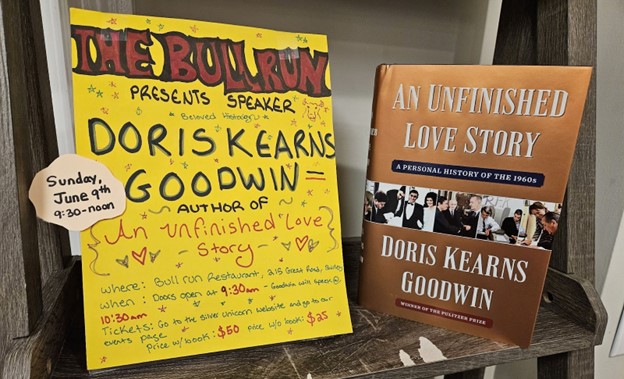 THE BULL RUN
PRESENTS SPEAKER
Beloved Historian
DORIS KEARNS
GOODWIN =
AUTHOR OF
An Unfinished Love
Story
Where: Bull run Restaurant, 215 Great Road, Shirley
When: Doors open @ 9:30am - Goodwin will speak @
10:30am
Tickets: Go to the Silver Unicorn website and go to our
events page
Price w/ book: $50 price w/o book: $25
Sunday,
June 9th
9:30-noon
AN UNFINISHED
LOVE STORY
A PERSONAL HISTORY OF THE 1960s
DORIS KEARNS
GOODWIN
WINNER OF THE PULITZER PRIZE